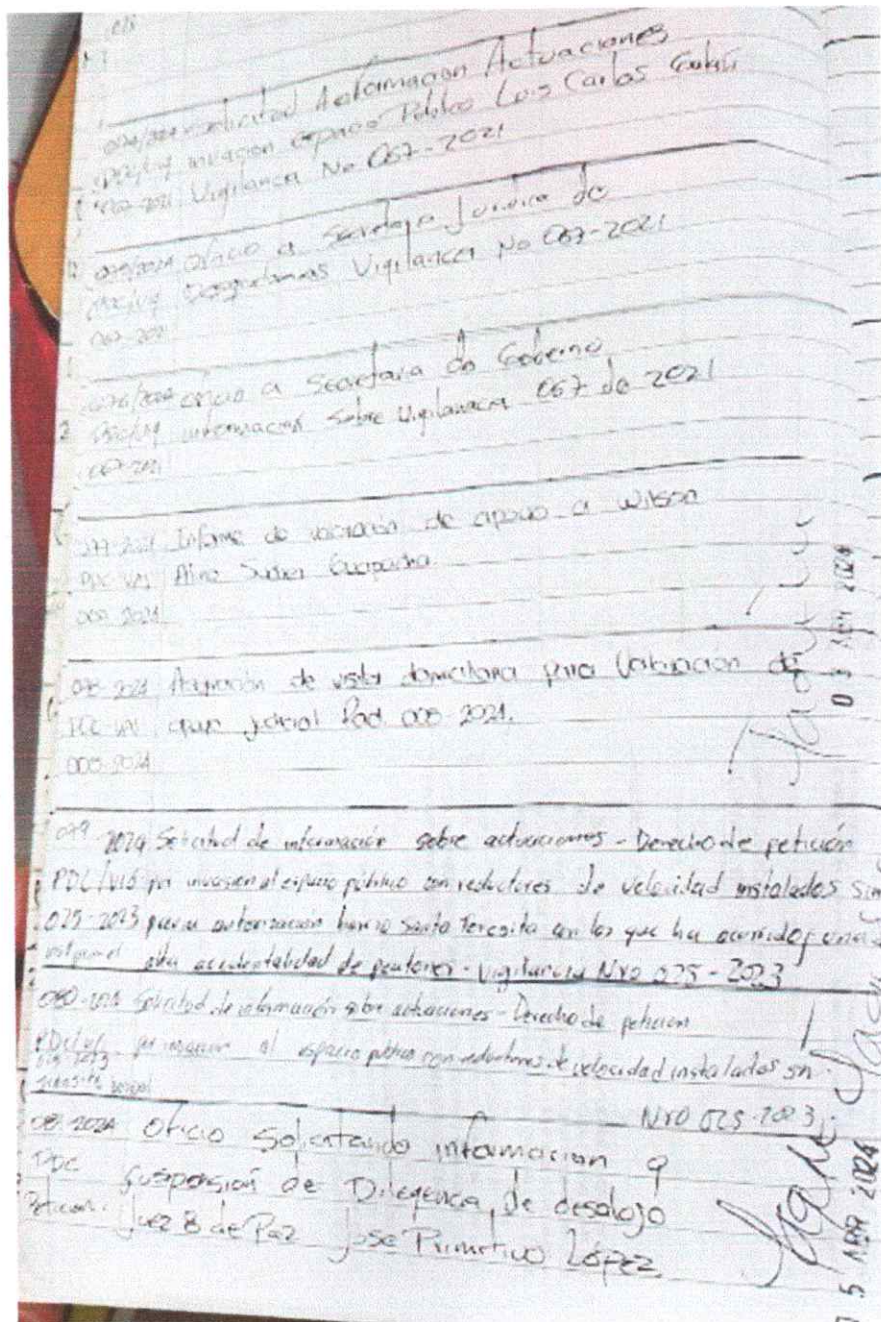 074/2024 Solicitud Información Actuaciones
PDC/vig invasion espacio Público Luis Carlos Galán
067-2021 Vigilancia No 067-2021
075/2024 Oficio a Secretaria Juridica de
PDC/vig Dosquebradas Vigilancia No 067-2021
067-2021
076/2024 oficio a Secretaria de Gobierno
PDC/vig información sobre vigilancia 067 de 2021
067-2021
077-2024 Informe de valoración de apoyo a Wilson
PDC-VAJ
009-2024
078-2024 de visita domiciliaria para Valoración de
PDC-VAJ apoyo judicial Rad. 008-2024.
008-2024
079-2024 Solicitud de información sobre actuaciones - Derecho de petición
PDC/VIG por invasion al espacio público con reductores de velocidad instalados sin
025-2023 previa autorizacion barrio Santa Teresita con los que ha ocurrido una
alta accidentalidad de peatones - Vigilancia Nro 025-2023
080-2024 Solicitud de información sobre actuaciones - Derecho de petición
PDC/VIG por invasion al espacio público con reductores de velocidad instalados sin
025-2023
Nro 025-2023
081-2024 Oficio solicitando informacion
PDC suspensión de Diligencia de desalojo
Peticion. Juez 8 de Paz Jose Primitivo López
03 ABR 2024
05 ABR 2024